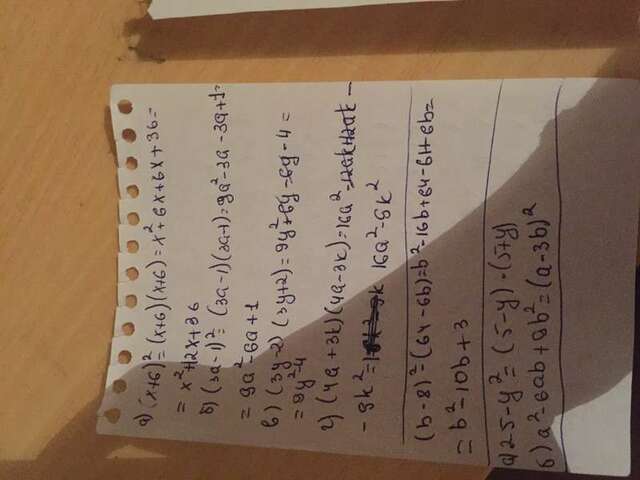 а) (x+6)² = (x+6)(x+6) = x² + 6x + 6x + 36 =
= x² + 12x + 36
б) (3a-1)² = (3a-1)(3a-1) = 9a² - 3a - 3a + 1 =
= 9a² - 6a + 1
в) (3y-2) (3y+2) = 9y² + 6y - 6y - 4 =
= 9y² - 4
г) (4a + 3k)(4a - 3k) = 16a² - 12ak + 12ak -
- 9k² = 16a² - 6k²
(b - 8)² - (64 - 6b) = b² - 16b + 64 - 61 + 6b =
= b² - 10b + 3
а) 25 - y² = (5 - y) · (5 + y)
б) a² - 6ab + 9b² = (a - 3b)²